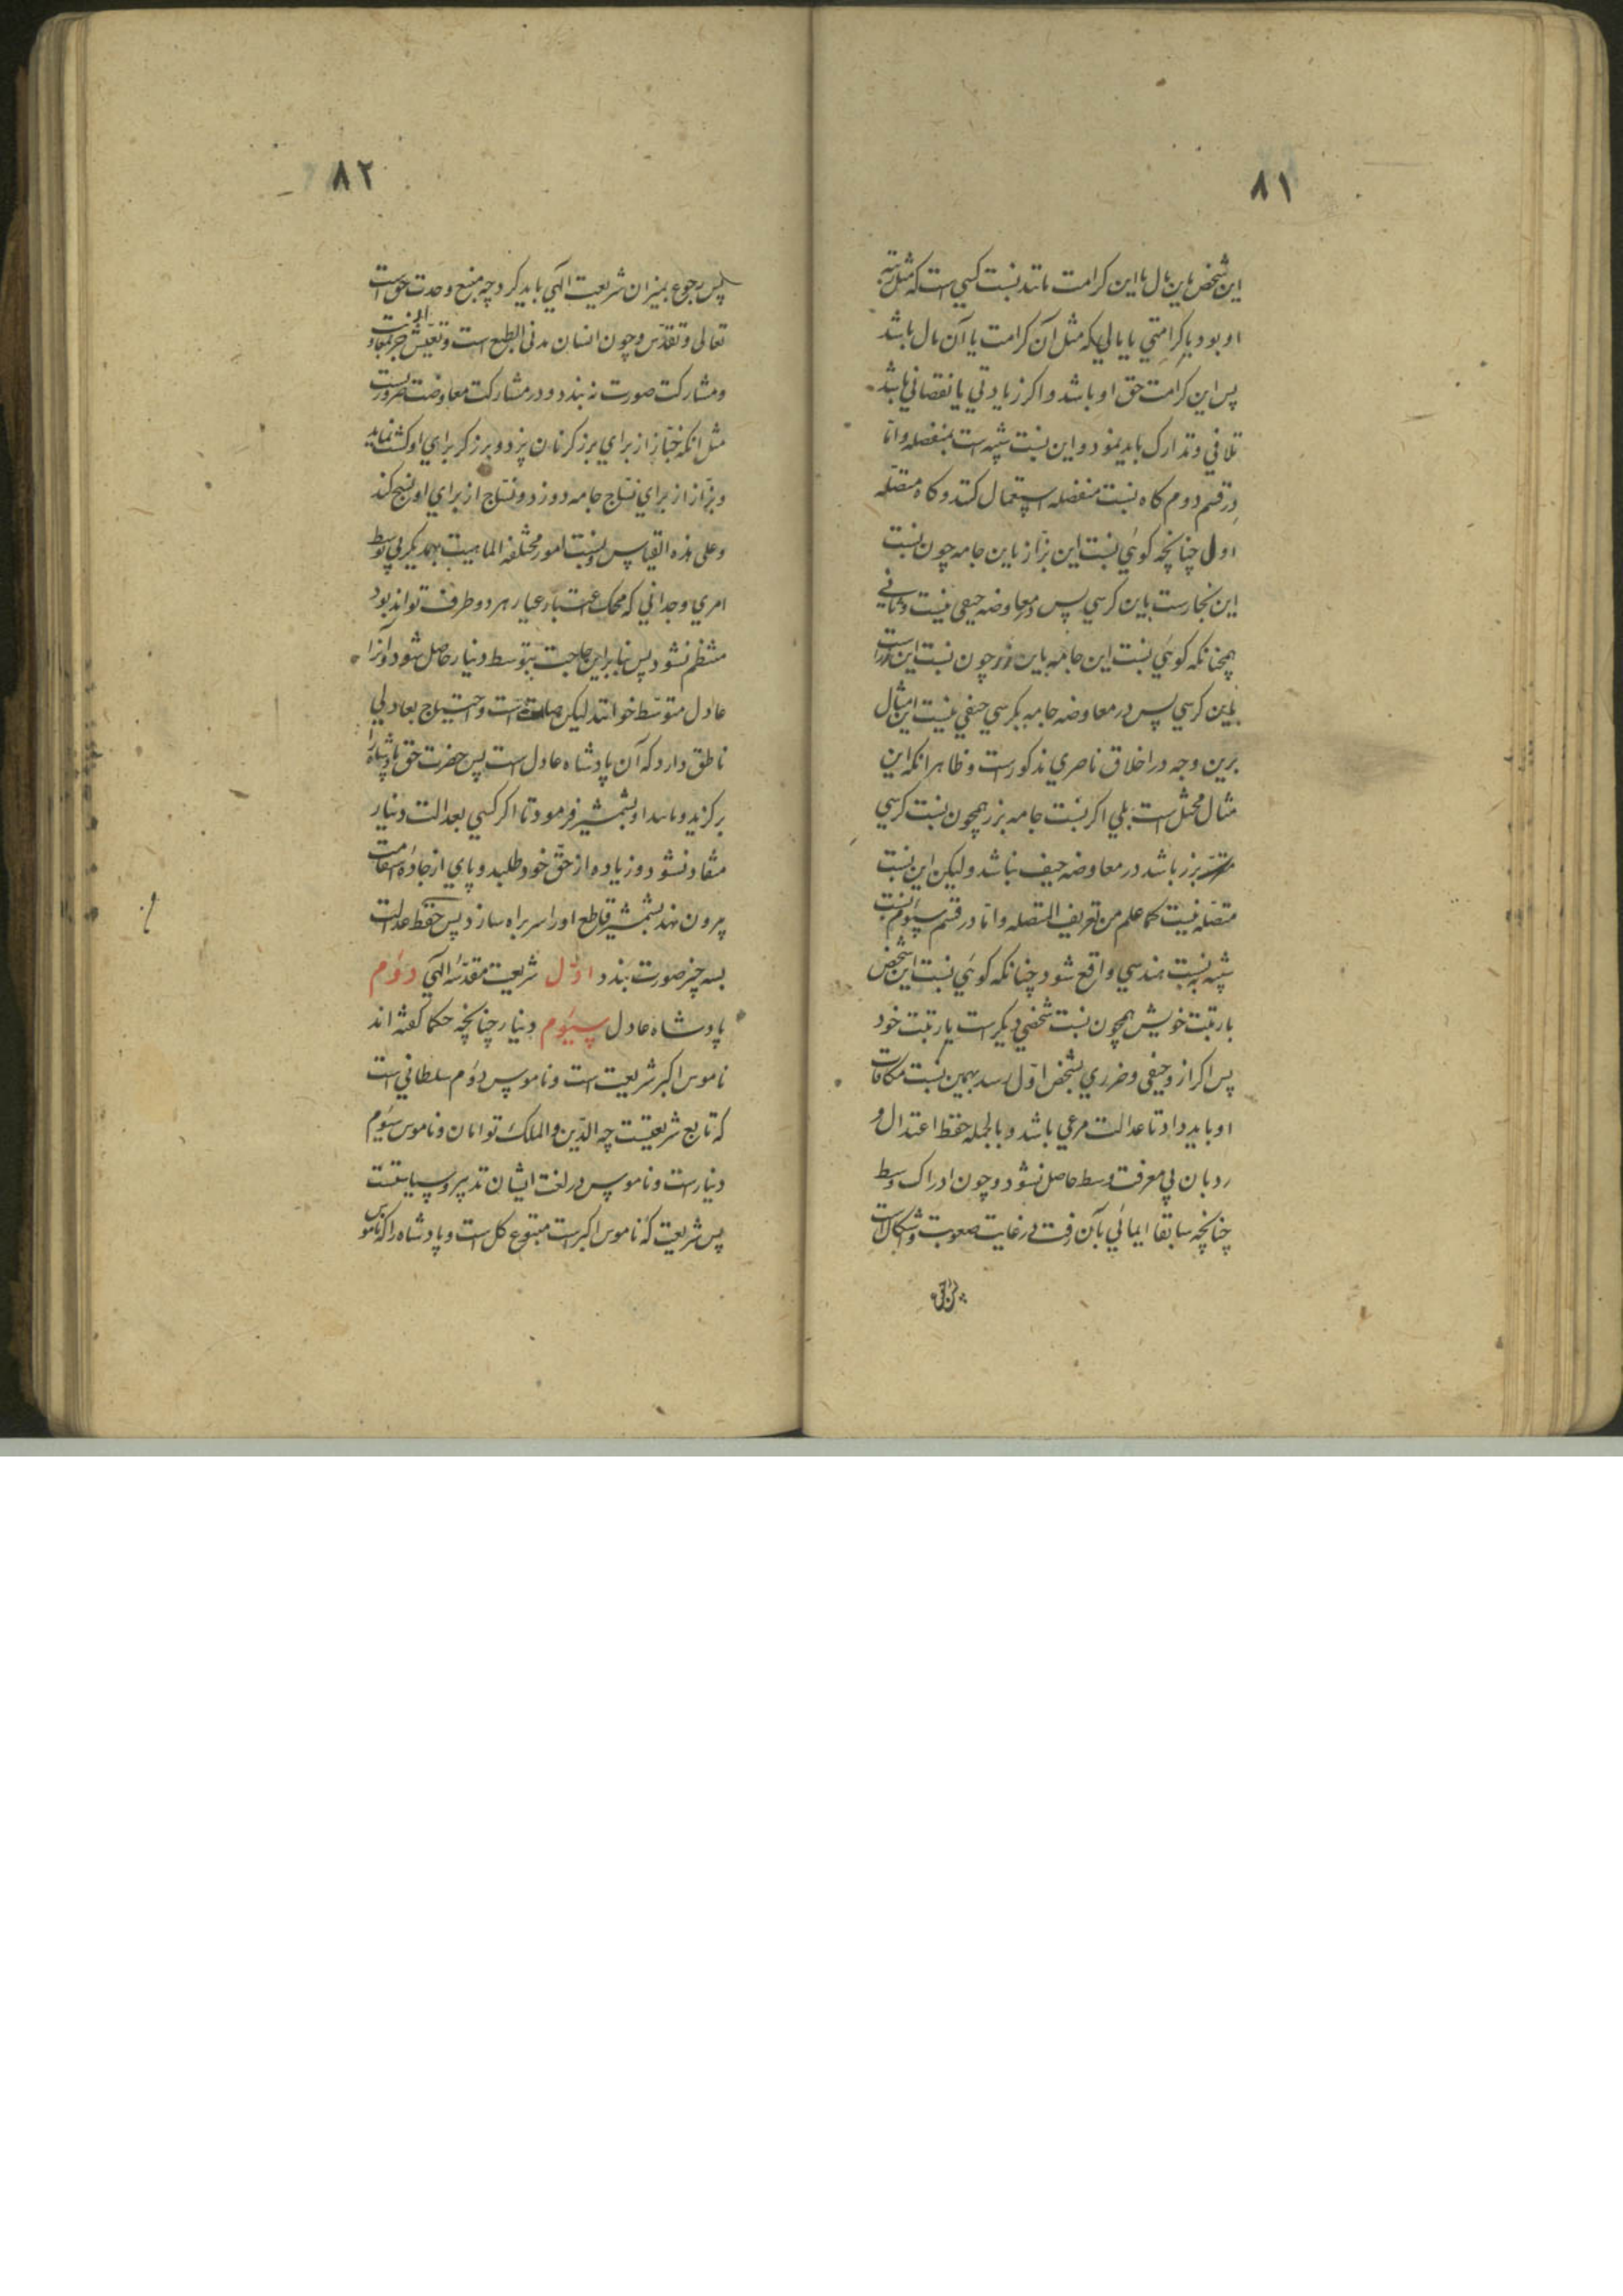 ۸۱
این شخص باین مال یا این کرامت مانند نسبت کسی است که مثل رتبه
او بود با کرامتی یا مالی که مثل آن کرامت یا آن مال باشد
پس این کرامت حق او باشد و اگر زیادتی یا نقصانی باشد
تلافی و تدارک باید نمود و این نسبت شبیه است بمنفصله و اما
در قسم دوم گاه نسبت منفصله استعمال کنند و گاه متصله
اول چنانچه گوئی نسبت این بزاز باین جامه چون نسبت
این نجارست باین کرسی پس در معاوضه حیفی نیست و ثانی
همچنانکه گوئی نسبت این جامه باین زر چون نسبت این زرست
باین کرسی پس در معاوضه جامه بکرسی حیفی نیست این مثال
برین وجه در اخلاق ناصری مذکورست و ظاهر آنکه این
مثال مختل است بلی اگر نسبت جامه بزر همچون نسبت کرسی
بزر باشد در معاوضه حیف نباشد ولیکن این نسبت
متصله نیست کما علم من تعریف المتصله و اما در قسم سیوم نسبت
شبیه به نسبت هندسی واقع شود چنانکه گوئی نسبت این شخص
با رتبت خویش همچون نسبت شخصی دیگرست با رتبت خود
پس اگر از و حیفی و ضرری بشخص اول رسد بهمین نسبت مکافات
او باید داد تا عدالت مرعی باشد و بالجمله حفظ اعتدال و
رد بان بی معرفت وسط حاصل نشود و چون ادراک وسط
چنانچه سابقا ایمائی بآن رفت در غایت صعوبت و اشکال است
۸۲
پس رجوع بمیزان شریعت الهی باید کرد چه منبع وحدت حق است
تعالی و تقدس و چون انسان مدنی الطبع است و تعیش جز بمعاونت
و مشارکت صورت نه بندد و در مشارکت معاوضت ضروریست
مثل آنکه خباز از برای برزگر نان پزد و برزگر برای او کشت نماید
و بزاز از برای نساج جامه دوزد و نساج از برای او نسج کند
و علی هذه القیاس و نسبت امور مختلفة الماهیت بهمدیگر بی توسط
امری وحدانی که محک اعتبار عیار هر دو طرف تواند بود
منتظم نشود پس بنابراین حاجت بتوسط دینار حاصل شود و آنرا
عادل متوسط خوانند لیکن صامت است و احتیاج بعادلی
ناطق دارد که آن پادشاه عادل است پس حضرت حق پادشاه را
برگزید و بشمشیر فرمود تا اگر کسی بعدالت دینار
منقاد نشود و زیاده از حق خود طلبد و پای از جاده استقامت
بیرون نهد بشمشیر قاطع او را سر براه سازد پس حفظ عدالت
بسه چیز صورت بندد اول شریعت مقدسه الهی دوم
پادشاه عادل سیوم دینار چنانچه حکما گفته اند
ناموس اکبر شریعت است و ناموس دوم سلطانی است
که تابع شریعتست چه الدین و الملک توأمان و ناموس سیوم
دینارست و ناموس در لغت ایشان تدبیر و سیاستست
پس شریعت که ناموس اکبر است متبوع کل است و پادشاه را که ناموس